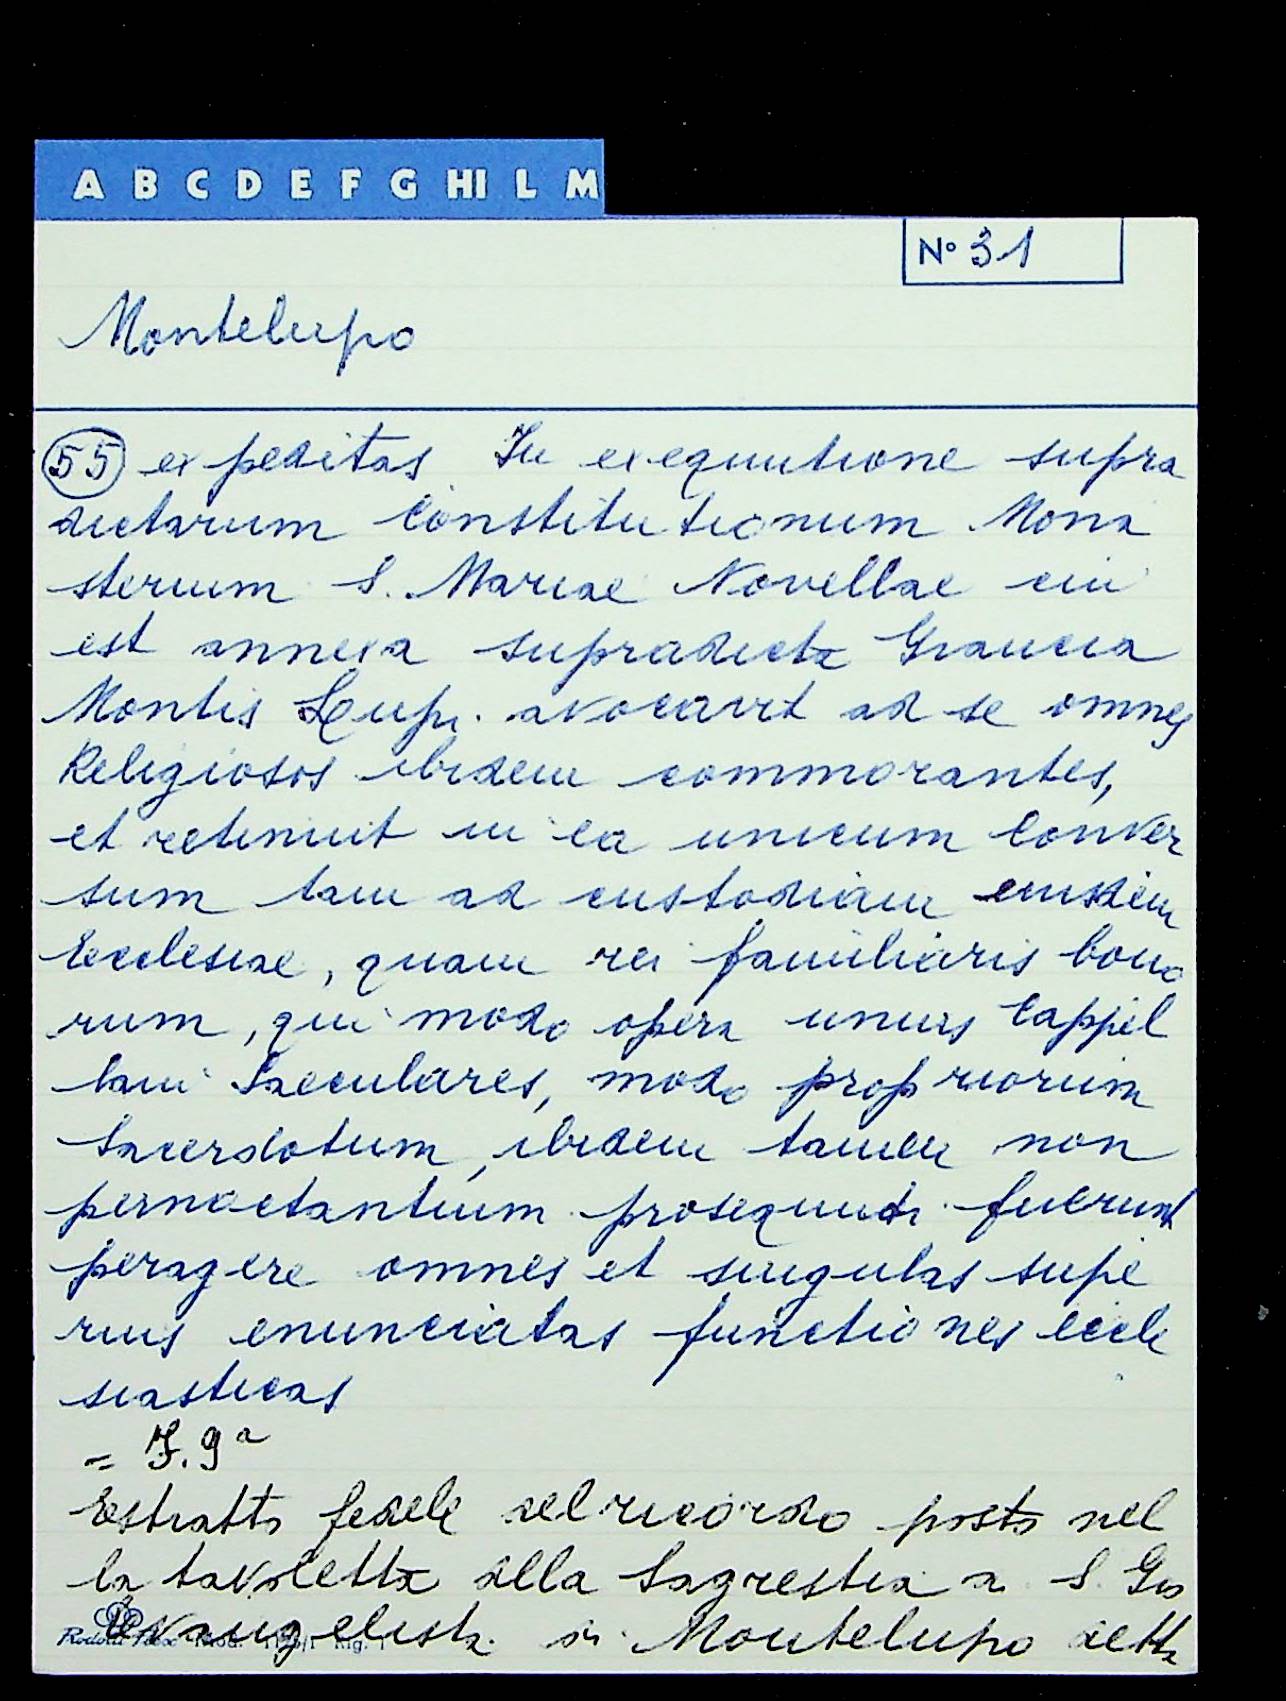 A B C D E F G HI L M
N° 31
Montelupo
55 expeditas In exequutione supra
dictarum Constitutionum Mona
sterium S. Mariae Novellae cui
est annexa supradicta Grancia
Montis Lupi. avocavit ad se omnes
Religiosos ibidem commorantes,
et retinuit in ea unicum Conver
sum tam ad custodiam eiusdem
Ecclesiae, quam rei familiaris bono
rum, qui modo opera unius Cappel
lani Saeculares, modo propriorum
Sacerdotum, ibidem tamen non
pernoctantium prosequuti fuerunt
peragere omnes et singulas supe
rius enunciatas functiones eccle
siasticas
Estratto fedele del ricordo posto nel
la tavoletta della Sagrestia a S. Gio
Evangelista di Montelupo detta